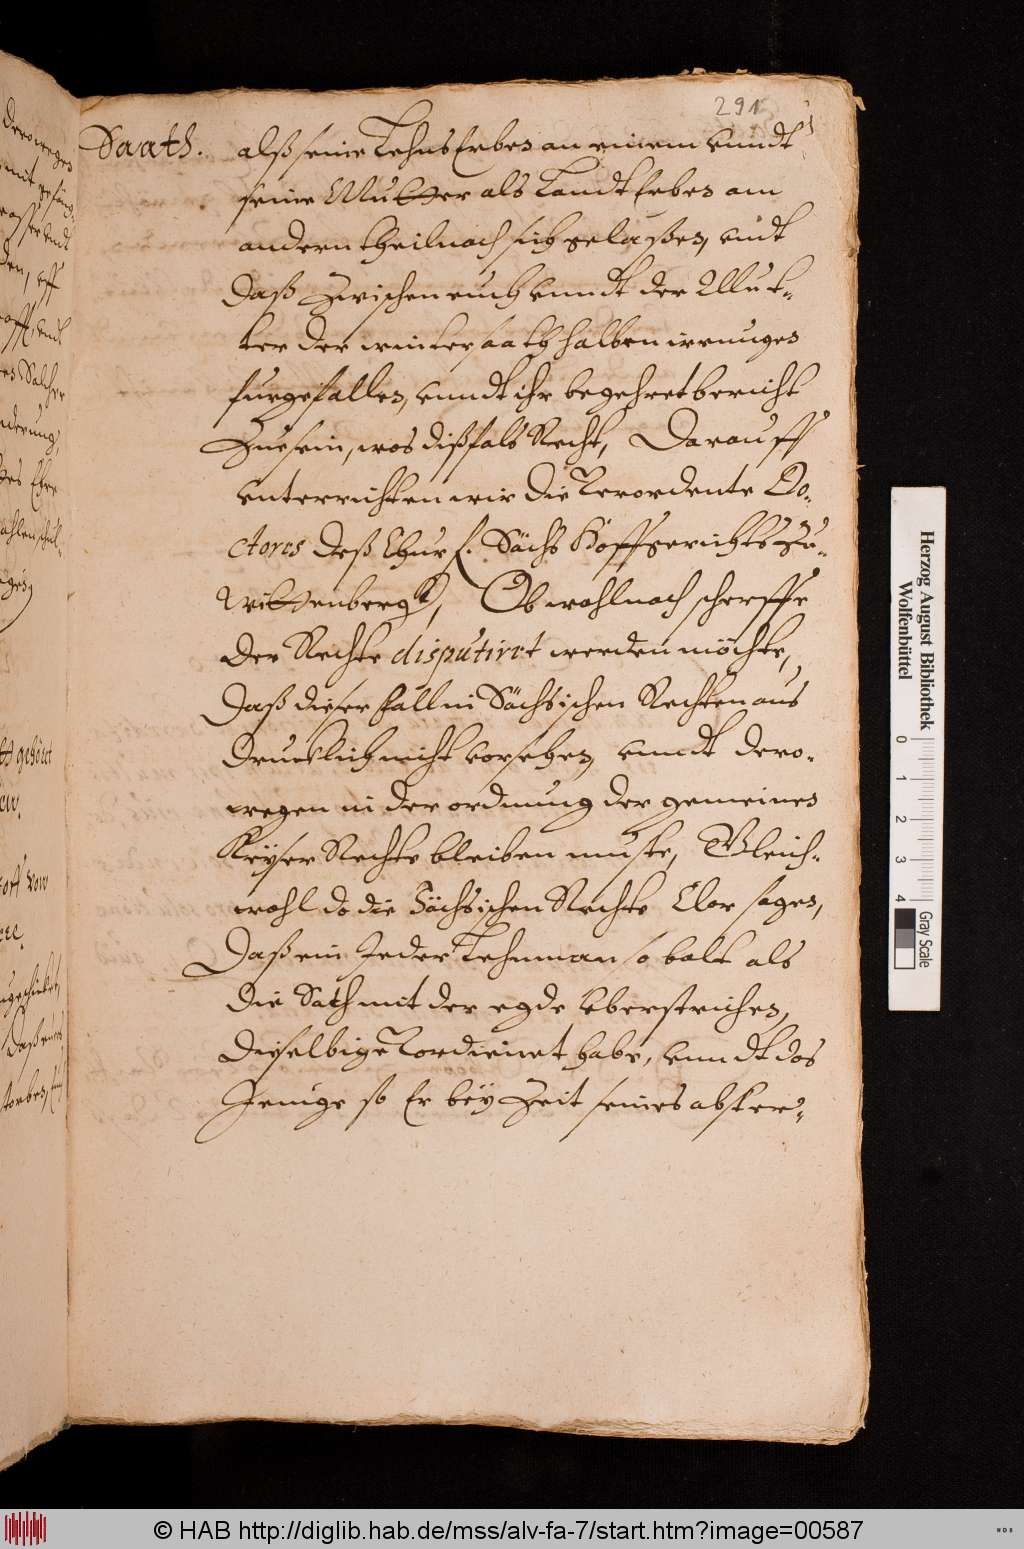 291
Saath.
alß seine LehnsErben an einem vnndt
seine Mutter als LandtErben am
andern theil nach sich gelaßen, vndt
daß zwischen euch vnndt der Mut-
ter der winter saath halben irrunges
furgefallen, vnndt ihr begehret bericht
Zue sein, was dißfals Recht, Darauff
vnterrichten wir die Verordente Do-
ctores deß Churf. Sächs Hoffgerichts Zu-
Wittenbergk, Ob wohl nach scherffe
der Rechte disputiret werden möchte,
Daß dieser fall in Sächsischen Rechten aus
drucklich nicht vorsehen, vnndt dero-
wegen in der ordnung der gemeinen
Keyser Rechte bleiben müste, Gleich-
wohl do die Sächsischen Rechte Clar sagen,
Daß ein Jeder Lehnman so balt als
die Sath mit der egde vberstrichen,
Dieselbige Vordienet habe, vnndt das
Jenige so Er bey Zeit seines abster-
Herzog August Bibliothek
Wolfenbüttel
0 1 2 3 4
Gray Scale
© HAB http://diglib.hab.de/mss/alv-fa-7/start.htm?image=00587